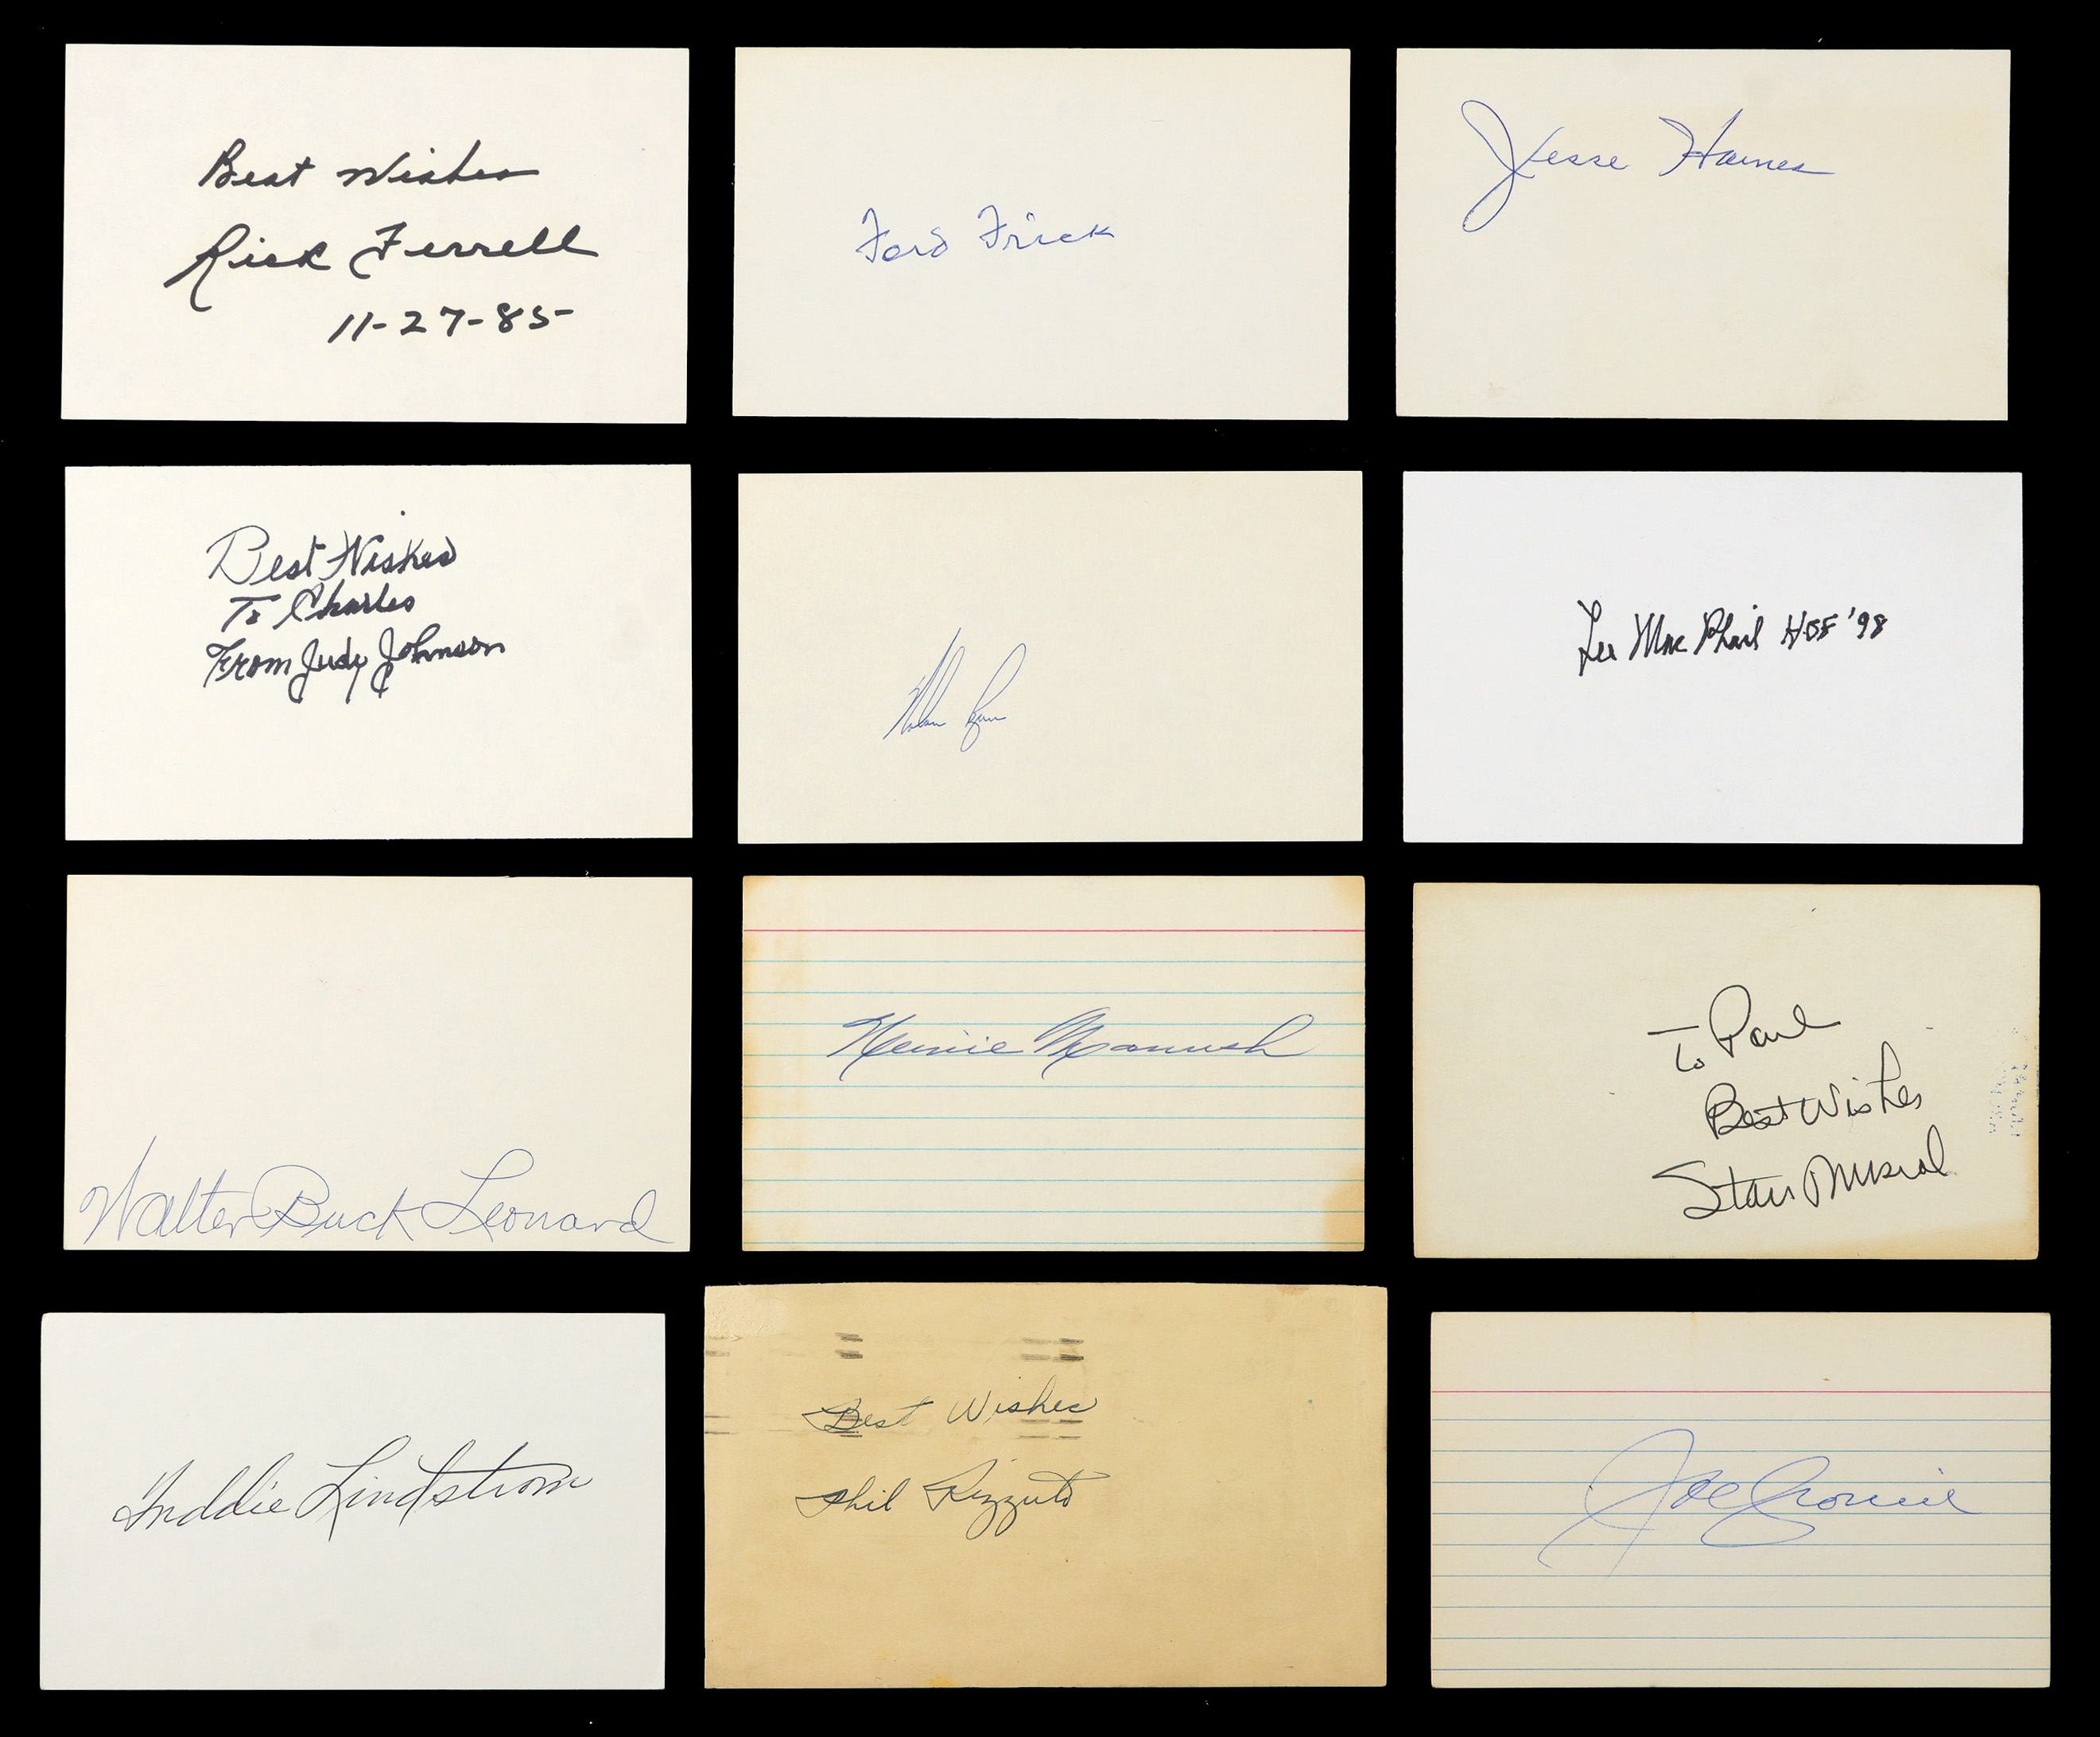 Best Wishes
Rick Ferrell
11-27-85
Ford Frick
Jesse Haines
Best Wishes
To Charles
From Judy Johnson
Nolan Ryan
Lee MacPhail HOF '98
Walter Buck Leonard
Heinie Manush
To Paul
Best Wishes
Stan Musial
Freddie Lindstrom
Best Wishes
Phil Rizzuto
Joe Cronin